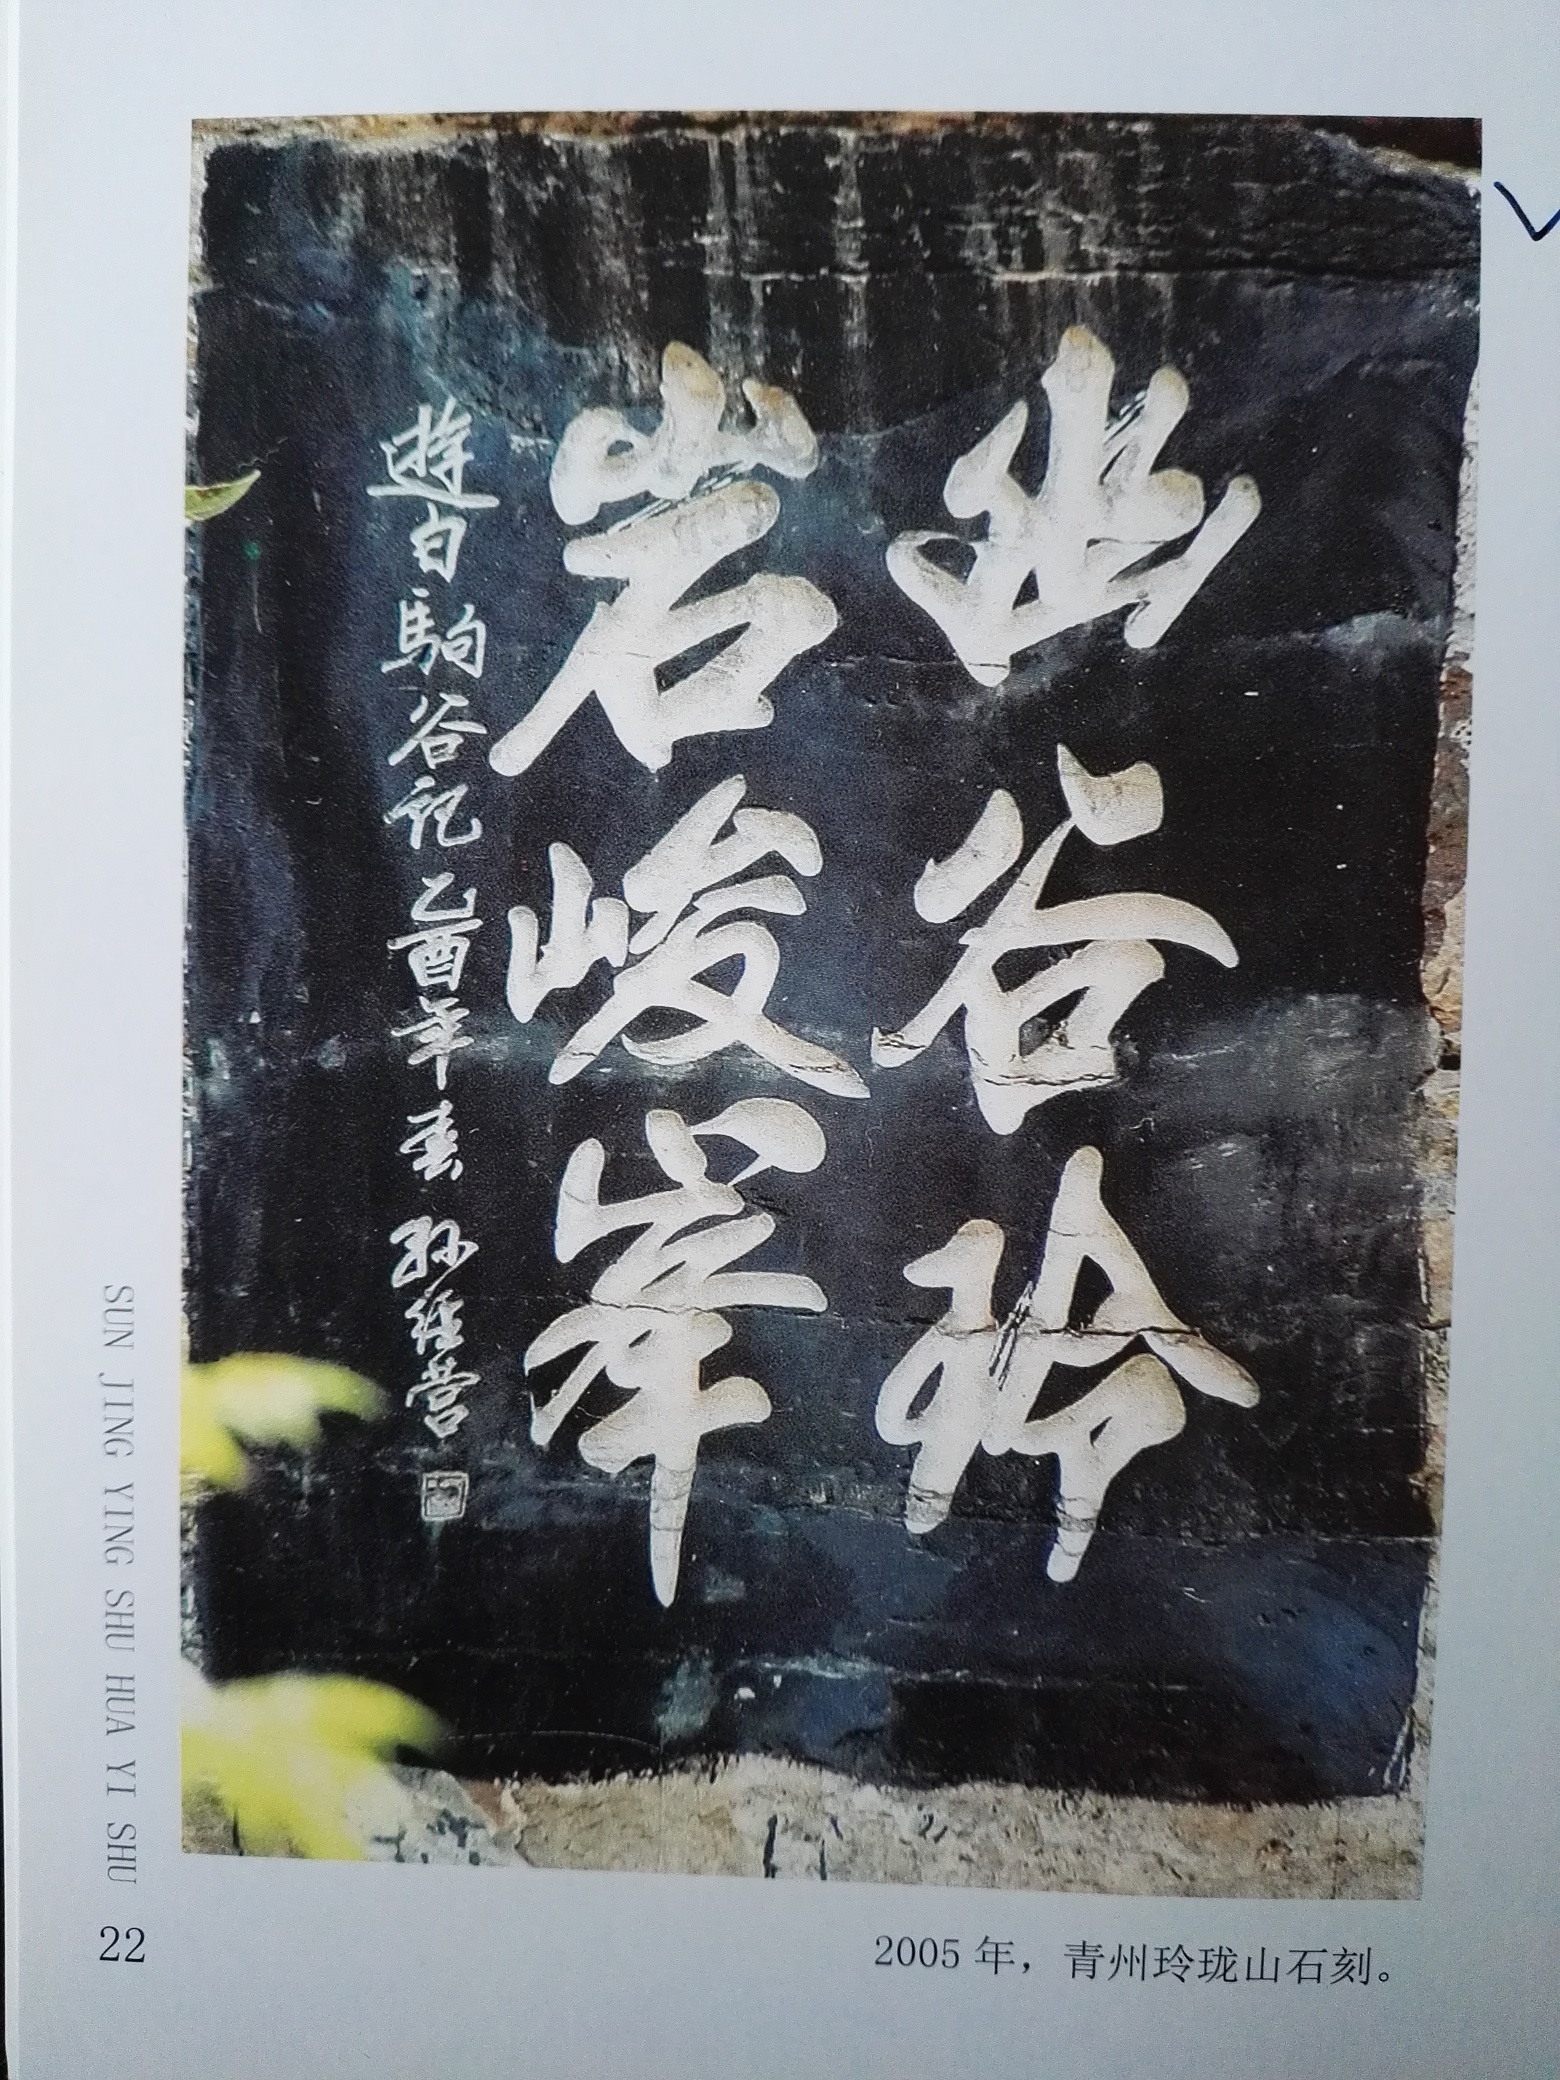 幽谷玲
岩峻峯
遊白駒谷記 乙酉年春 孙经营
SUN JING YING SHU HUA YI SHU
22
2005年，青州玲珑山石刻。